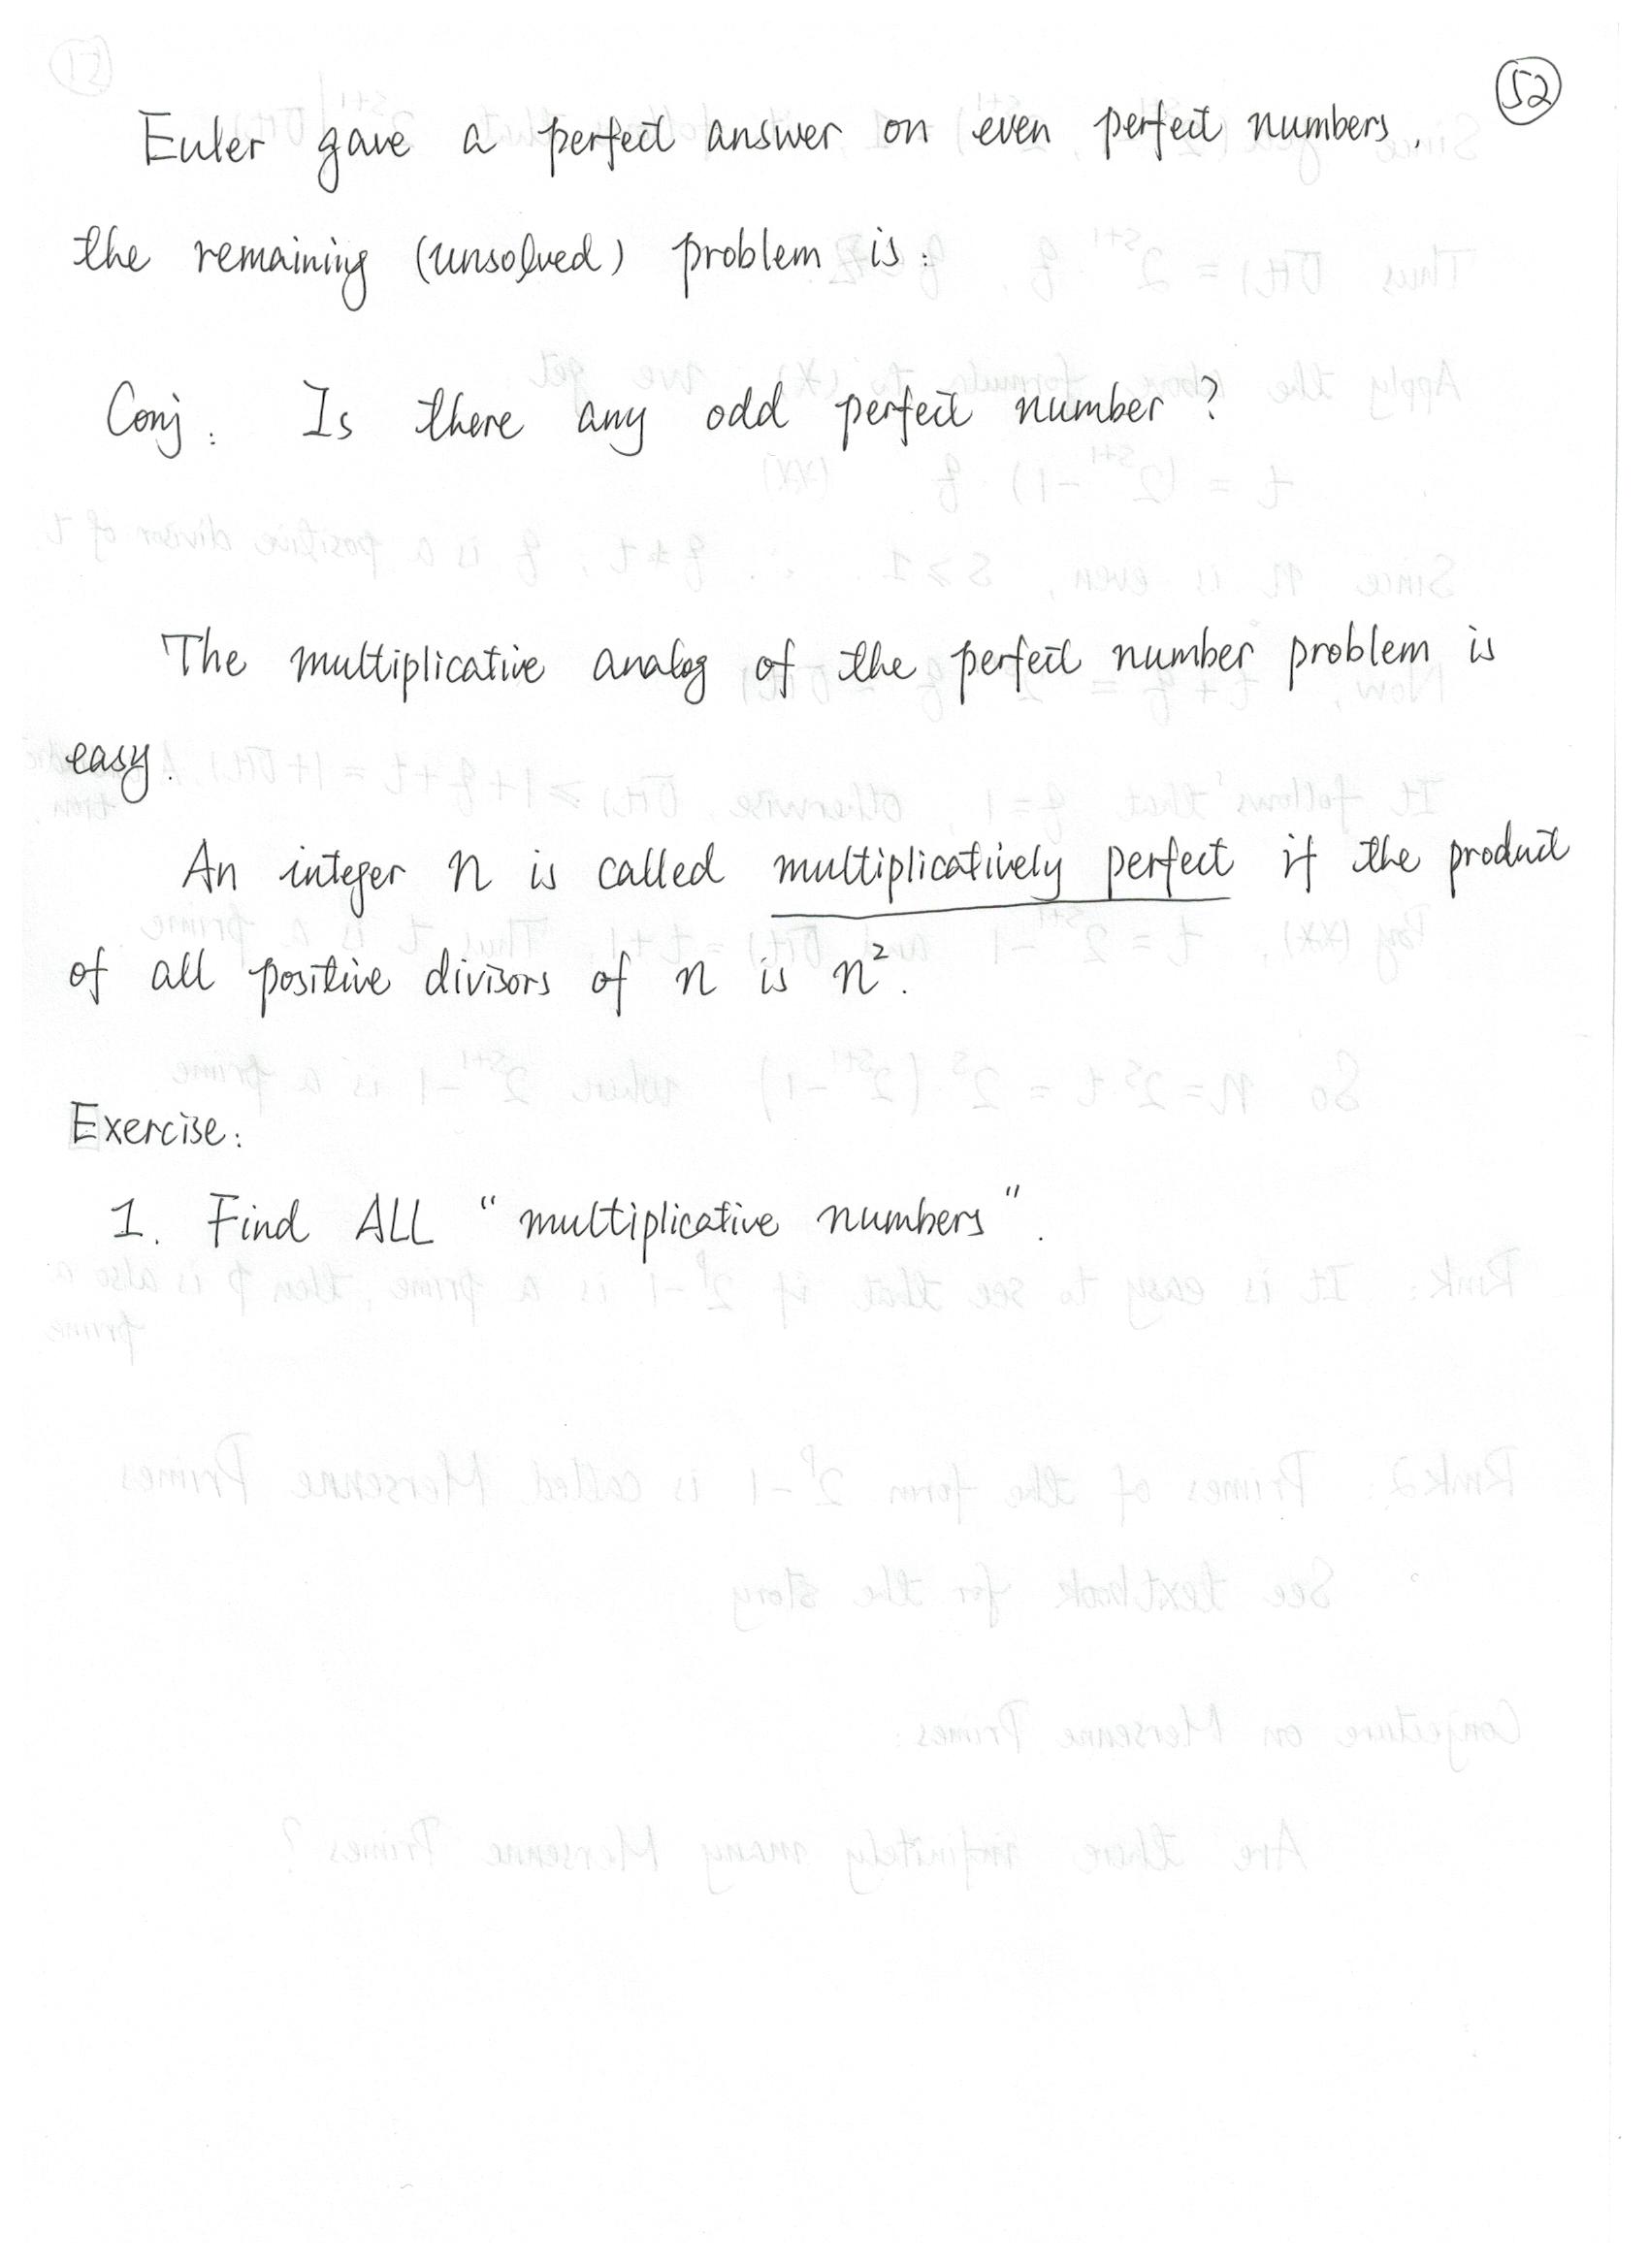 52
Euler gave a perfect answer on even perfect numbers.
the remaining (unsolved) problem is:
Conj: Is there any odd perfect number?
The multiplicative analog of the perfect number problem is
easy.
An integer n is called multiplicatively perfect if the product
of all positive divisors of n is n².
Exercise:
1. Find ALL "multiplicative numbers".